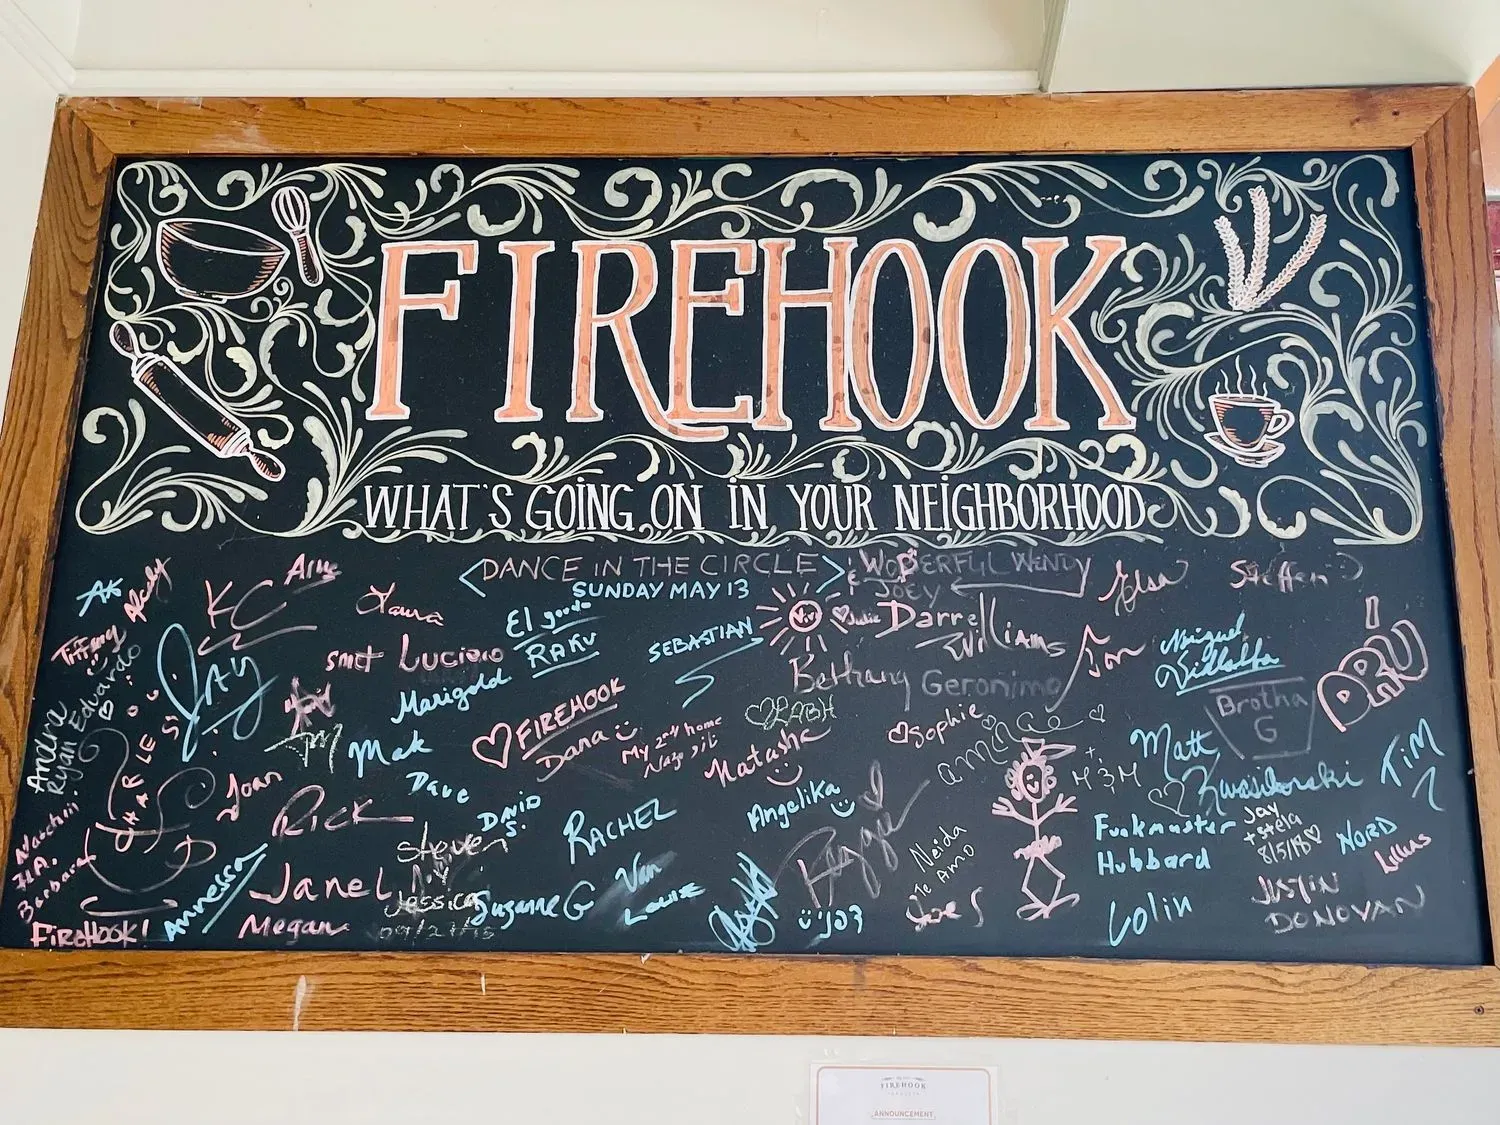 FIREHOOK
WHAT'S GOING ON IN YOUR NEIGHBORHOOD
DANCE IN THE CIRCLE
SUNDAY MAY 13
WONDERFUL WENDY
JOEY
Steffen
AK
KC
Laura
El gordo
RAKU
SEBASTIAN
Viv
Julie
Darrell
Williams
Jon
Miguel
Tiffany
Eduardo
JAY
smet
Luciano
Marigold
Bethany
Geronimo
Brotha
G
DRU
FIREHOOK
Dana
My 2nd home
LABH
Natasha
Sophie
Andra
Ryan
CHARLES
Mak
Dave
Joan
Rick
DAVID
S.
RACHEL
Angelika
Matt
TIM
M3M
Funkmaster
Hubbard
Jay
+ Stela
8/5/18
NORD
Steven
Neida
Te Amo
Barbara
Annessa
Janel
Jessica
09/21/15
Suzanne G
Van
Louie
JUSTIN
DONOVAN
Colin
FIREHOOK!
Megan
FIREHOOK
ANNOUNCEMENT